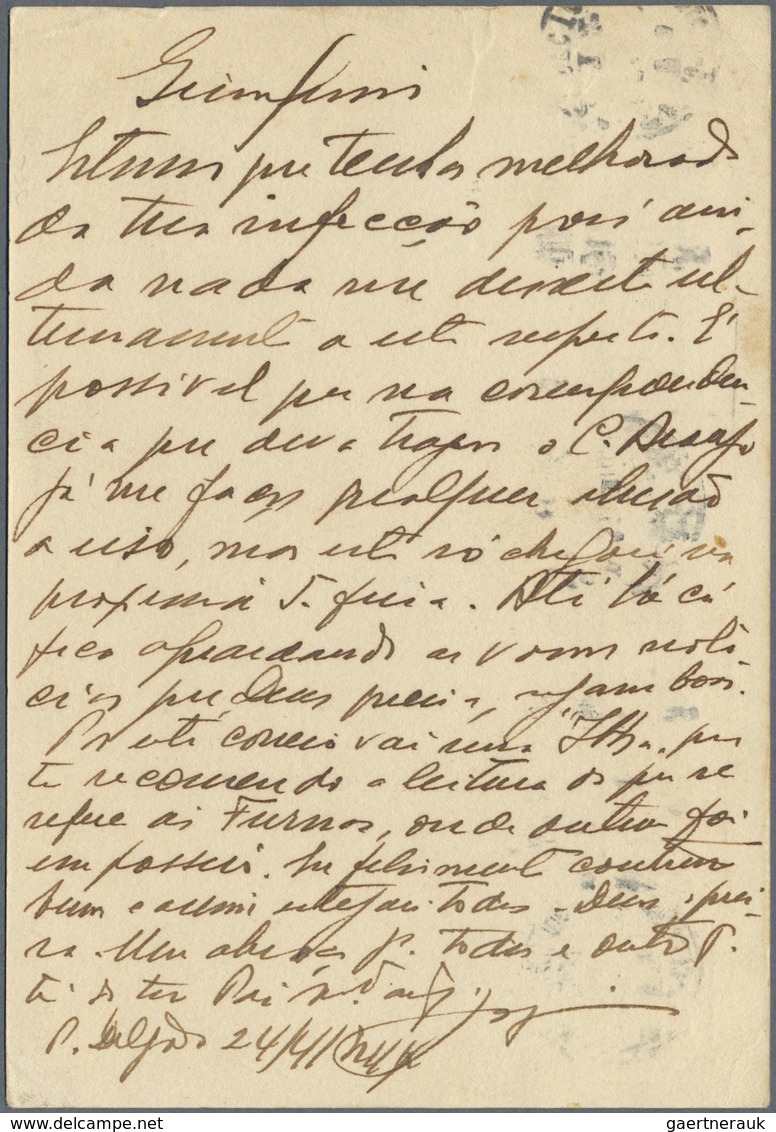 Estimo que tenhas melhorado
da tua infecção pois ain-
da nada me disseste ul-
timamente a este respeito. É
possível que na correspondên-
cia que deva trazer o C. Araujo
já me faças qualquer alusão
a isso, mas este só chegará na
proxima 5.ª feira. Até lá cá
fico aguardando as vossas notí-
cias que, Deus queira, sejam boas.
Por este correio vai uma que
te recomendo a leitura do que se
refere às Furnas, onde ontem foi
em passeio. Infelizmente continuo
bem e assim estejam todos Deus quei-
ra. Um abraço p. todos e outro p.
ti do teu Pai
P. Delgada 24/4/
gaertnerauk